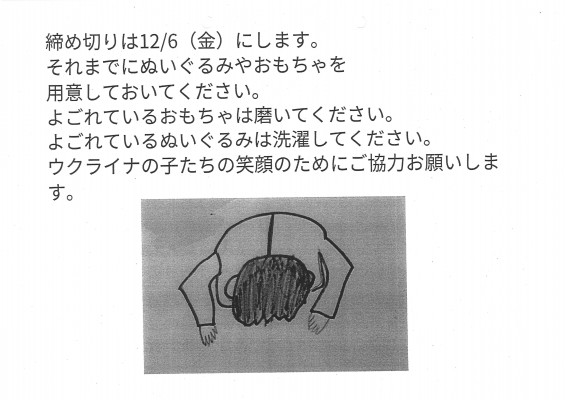 締め切りは12/6（金）にします。
それまでにぬいぐるみやおもちゃを
用意しておいてください。
よごれているおもちゃは磨いてください。
よごれているぬいぐるみは洗濯してください。
ウクライナの子たちの笑顔のためにご協力お願いしま
す。